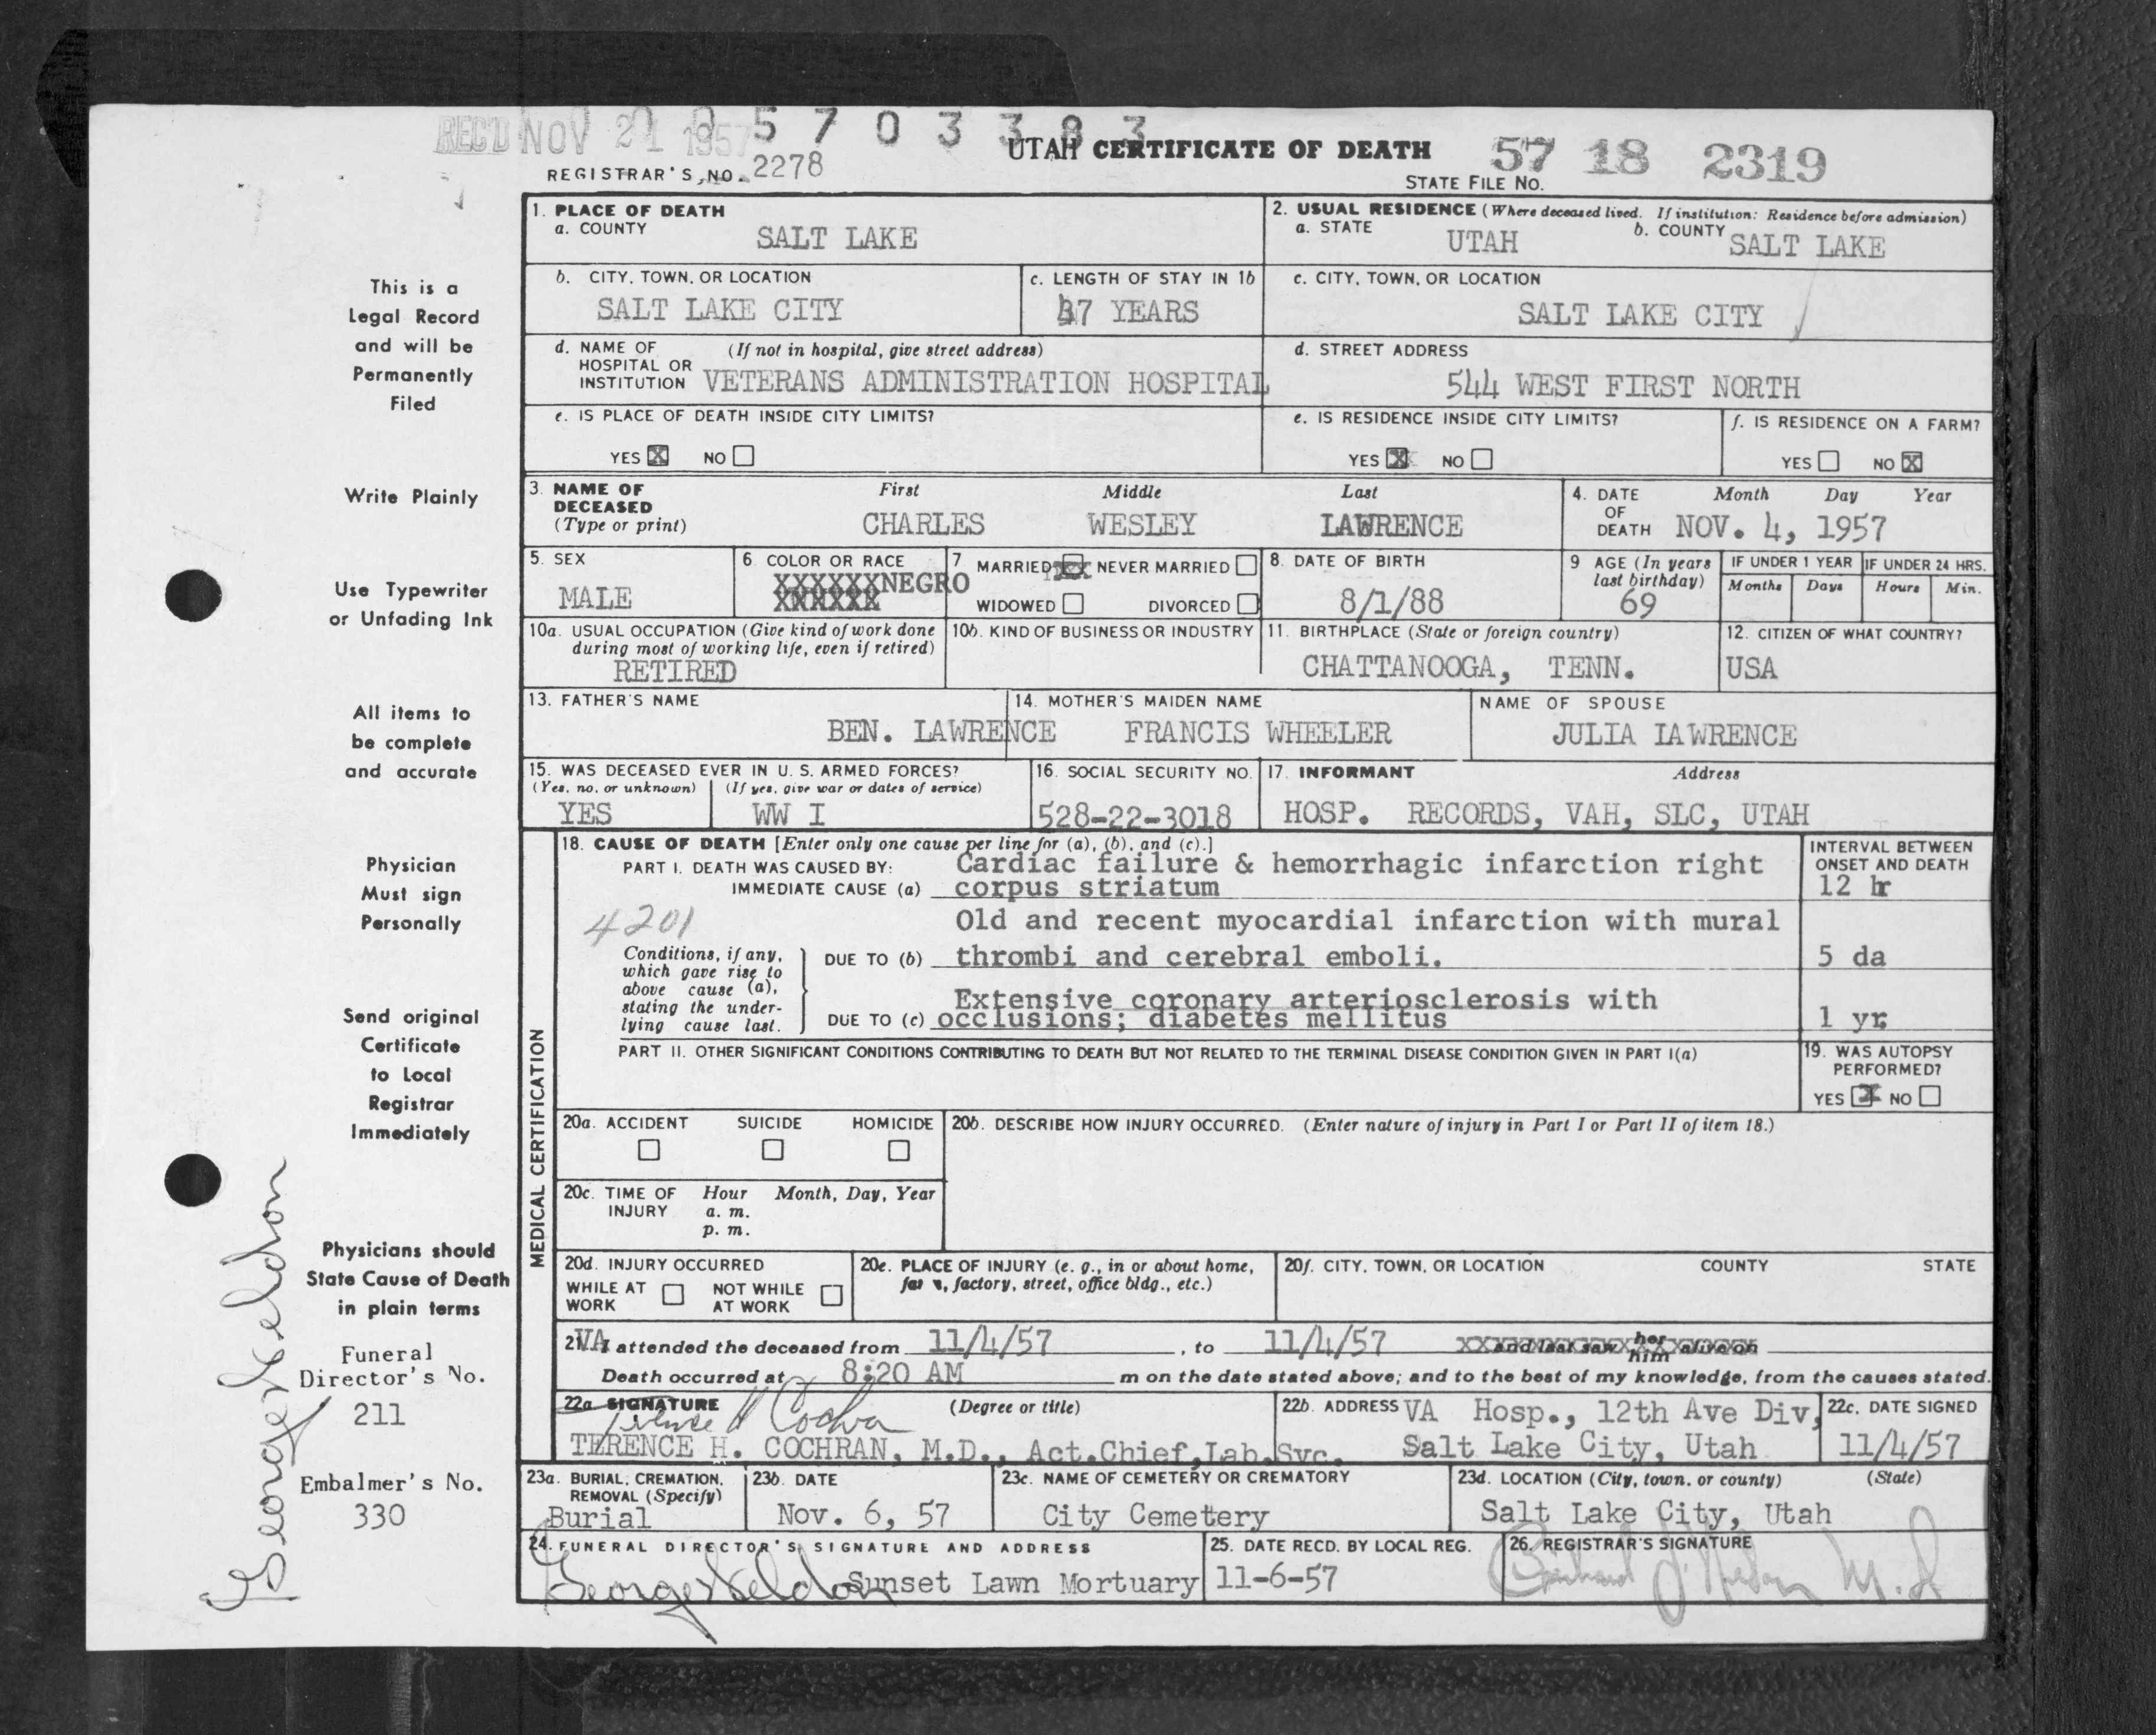 REC'D NOV 21 1957
5 7 0 3 3 8 3
UTAH CERTIFICATE OF DEATH
57 18 2319
REGISTRAR'S NO. 2278
STATE FILE NO.
1. PLACE OF DEATH
a. COUNTY
SALT LAKE
2. USUAL RESIDENCE (Where deceased lived. If institution: Residence before admission)
a. STATE
UTAH
b. COUNTY
SALT LAKE
b. CITY, TOWN, OR LOCATION
SALT LAKE CITY
c. LENGTH OF STAY IN 1b
37 YEARS
c. CITY, TOWN, OR LOCATION
SALT LAKE CITY
d. NAME OF (If not in hospital, give street address)
HOSPITAL OR
INSTITUTION VETERANS ADMINISTRATION HOSPITAL
d. STREET ADDRESS
544 WEST FIRST NORTH
e. IS PLACE OF DEATH INSIDE CITY LIMITS?
YES X NO
e. IS RESIDENCE INSIDE CITY LIMITS?
YES X NO
f. IS RESIDENCE ON A FARM?
YES NO X
3. NAME OF DECEASED
(Type or print)
First Middle Last
CHARLES WESLEY LAWRENCE
4. DATE OF DEATH
Month Day Year
NOV. 4, 1957
5. SEX
MALE
6. COLOR OR RACE
XXXXXXNEGRO
XXXXXX
7 MARRIED XX NEVER MARRIED
WIDOWED DIVORCED
8. DATE OF BIRTH
8/1/88
9 AGE (In years
last birthday)
69
IF UNDER 1 YEAR
Months Days
IF UNDER 24 HRS.
Hours Min.
10a. USUAL OCCUPATION (Give kind of work done
during most of working life, even if retired)
RETIRED
10b. KIND OF BUSINESS OR INDUSTRY
11. BIRTHPLACE (State or foreign country)
CHATTANOOGA, TENN.
12. CITIZEN OF WHAT COUNTRY?
USA
13. FATHER'S NAME
BEN. LAWRENCE
14. MOTHER'S MAIDEN NAME
FRANCIS WHEELER
NAME OF SPOUSE
JULIA LAWRENCE
15. WAS DECEASED EVER IN U. S. ARMED FORCES?
(Yes, no, or unknown) (If yes, give war or dates of service)
YES WW I
16. SOCIAL SECURITY NO.
528-22-3018
17. INFORMANT Address
HOSP. RECORDS, VAH, SLC, UTAH
18. CAUSE OF DEATH [Enter only one cause per line for (a), (b), and (c).]
PART I. DEATH WAS CAUSED BY:
IMMEDIATE CAUSE (a)
Cardiac failure & hemorrhagic infarction right
corpus striatum
INTERVAL BETWEEN
ONSET AND DEATH
12 hr
4201
Conditions, if any,
which gave rise to
above cause (a),
stating the under-
lying cause last.
Old and recent myocardial infarction with mural
DUE TO (b) thrombi and cerebral emboli.
5 da
Extensive coronary arteriosclerosis with
DUE TO (c) occlusions; diabetes mellitus
1 yr
PART II. OTHER SIGNIFICANT CONDITIONS CONTRIBUTING TO DEATH BUT NOT RELATED TO THE TERMINAL DISEASE CONDITION GIVEN IN PART I(a)
19. WAS AUTOPSY
PERFORMED?
YES X NO
MEDICAL CERTIFICATION
20a. ACCIDENT SUICIDE HOMICIDE
20b. DESCRIBE HOW INJURY OCCURRED. (Enter nature of injury in Part I or Part II of item 18.)
20c. TIME OF Hour Month, Day, Year
INJURY a. m.
p. m.
20d. INJURY OCCURRED
WHILE AT WORK NOT WHILE AT WORK
20e. PLACE OF INJURY (e. g., in or about home,
farm, factory, street, office bldg., etc.)
20f. CITY, TOWN, OR LOCATION COUNTY STATE
21. VA attended the deceased from 11/4/57, to 11/4/57 XX and last saw her him alive on
Death occurred at 8:20 AM m on the date stated above; and to the best of my knowledge, from the causes stated.
22a SIGNATURE (Degree or title)
Terence H Cochran
TERENCE H. COCHRAN, M.D., Act.Chief,Lab.Svc.
22b. ADDRESS VA Hosp., 12th Ave Div,
Salt Lake City, Utah
22c. DATE SIGNED
11/4/57
23a. BURIAL, CREMATION,
REMOVAL (Specify)
Burial
23b. DATE
Nov. 6, 57
23c. NAME OF CEMETERY OR CREMATORY
City Cemetery
23d. LOCATION (City, town, or county) (State)
Salt Lake City, Utah
24. FUNERAL DIRECTOR'S SIGNATURE AND ADDRESS
Sunset Lawn Mortuary
25. DATE RECD. BY LOCAL REG.
11-6-57
26. REGISTRAR'S SIGNATURE
M.D
This is a
Legal Record
and will be
Permanently
Filed
Write Plainly
Use Typewriter
or Unfading Ink
All items to
be complete
and accurate
Physician
Must sign
Personally
Send original
Certificate
to Local
Registrar
Immediately
Physicians should
State Cause of Death
in plain terms
Funeral
Director's No.
211
Embalmer's No.
330